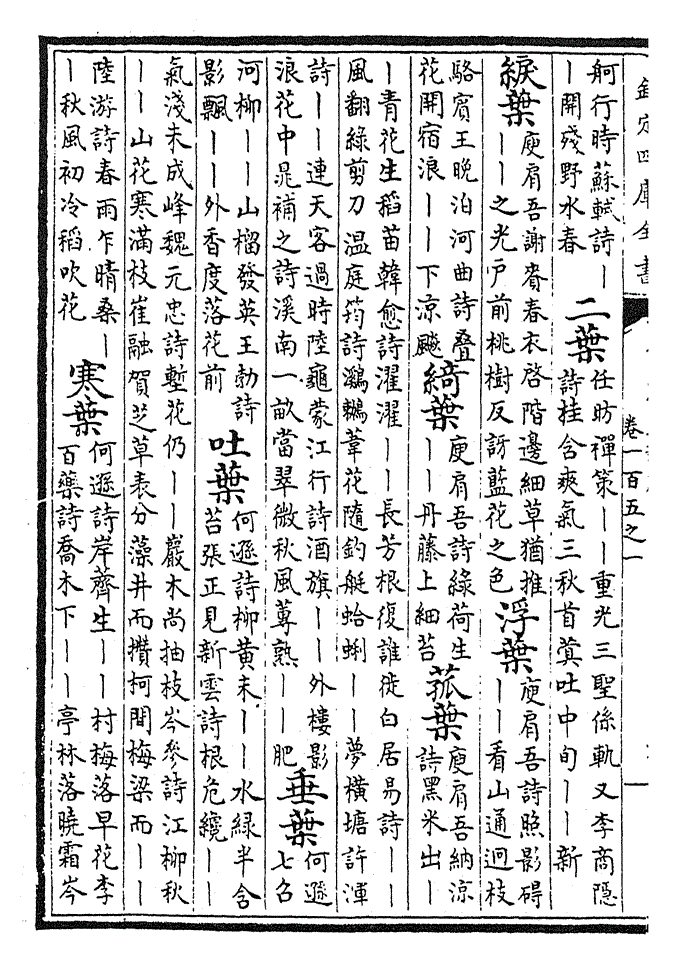 欽定四庫全書
卷一百五之一
舸行時蘇軾詩丨
丨開殘野水春
二葉
任昉禪策丨丨重光三聖係軌又李商隱
詩桂含爽氣三秋首蓂吐中旬丨丨新
綟葉
庾肩吾謝賚春衣啓階邊細草猶推
丨丨之光戸前桃樹反訝藍花之色
浮葉
庾肩吾詩照影碍
丨丨看山通迥枝
駱賓王晚泊河曲詩疊
花開宿浪丨丨下涼飈
綺葉
庾肩吾詩綠荷生
丨丨丹藤上細苔
菰葉
庾肩吾納涼
詩黑米出丨
丨青花生稻苗韓愈詩濯濯丨丨長芳根復誰徙白居易詩丨丨
風翻綠剪刀温庭筠詩鸂鶒葦花隨釣艇蛤蜊丨丨夢橫塘許渾
詩丨丨連天客過時陸龜蒙江行詩酒旗丨丨外樓影
浪花中晁補之詩溪南一畝當翠微秋風蓴熟丨丨肥
垂葉
何遜
七召
河柳丨丨山榴發英王勃詩
影飄丨丨外香度落花前
吐葉
何遜詩柳黃未丨丨水綠半含
苔張正見新雲詩根危纔丨丨
氣淺未成峰魏元忠詩塹花仍丨丨巖木尚抽枝岑參詩江柳秋
丨丨山花寒滿枝崔融賀芝草表分藻井而攢柯間梅梁而丨丨
陸游詩春雨乍晴桑丨
丨秋風初冷稻吹花
寒葉
何遜詩岸薺生丨丨村梅落早花李
百藥詩喬木下丨丨亭林落曉霜岑